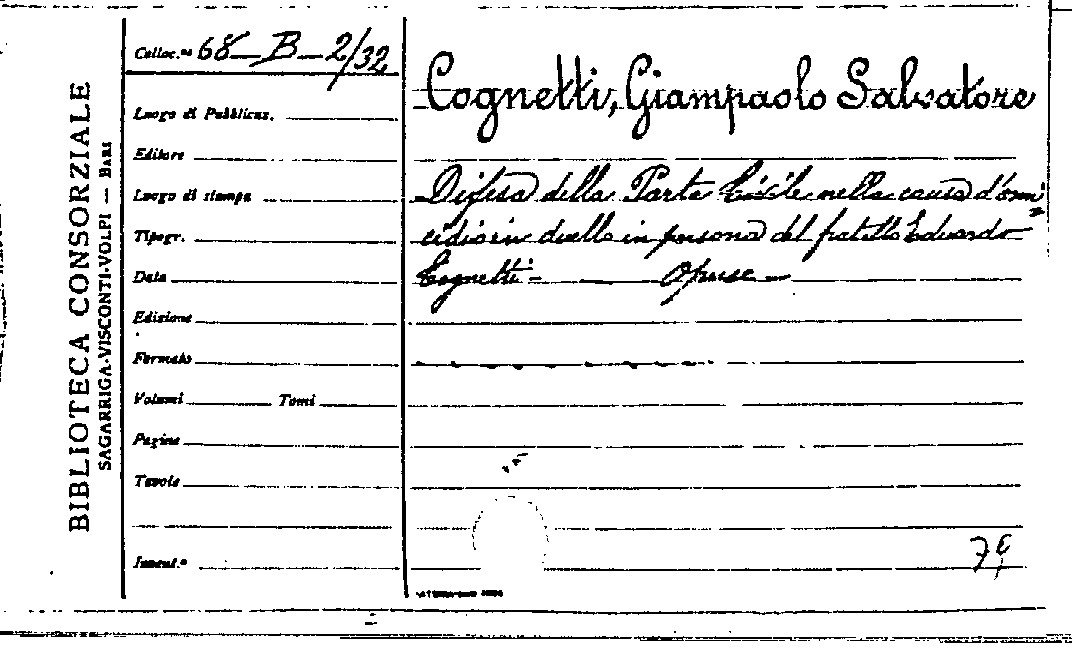 BIBLIOTECA CONSORZIALE
SAGARRIGA-VISCONTI-VOLPI — BARI
Colloc.ne 68-B-2/32
Luogo di Pubblicaz.
Editore
Luogo di stampa
Tipogr.
Data
Edizione
Formato
Volumi Tomi
Pagine
Tavole
Invent.o
Cognetti, Giampaolo Salvatore
Difesa della Parte Civile nella causa d'omi=
cidio in duello in persona del fratello Eduardo
Cognetti- Opusc-